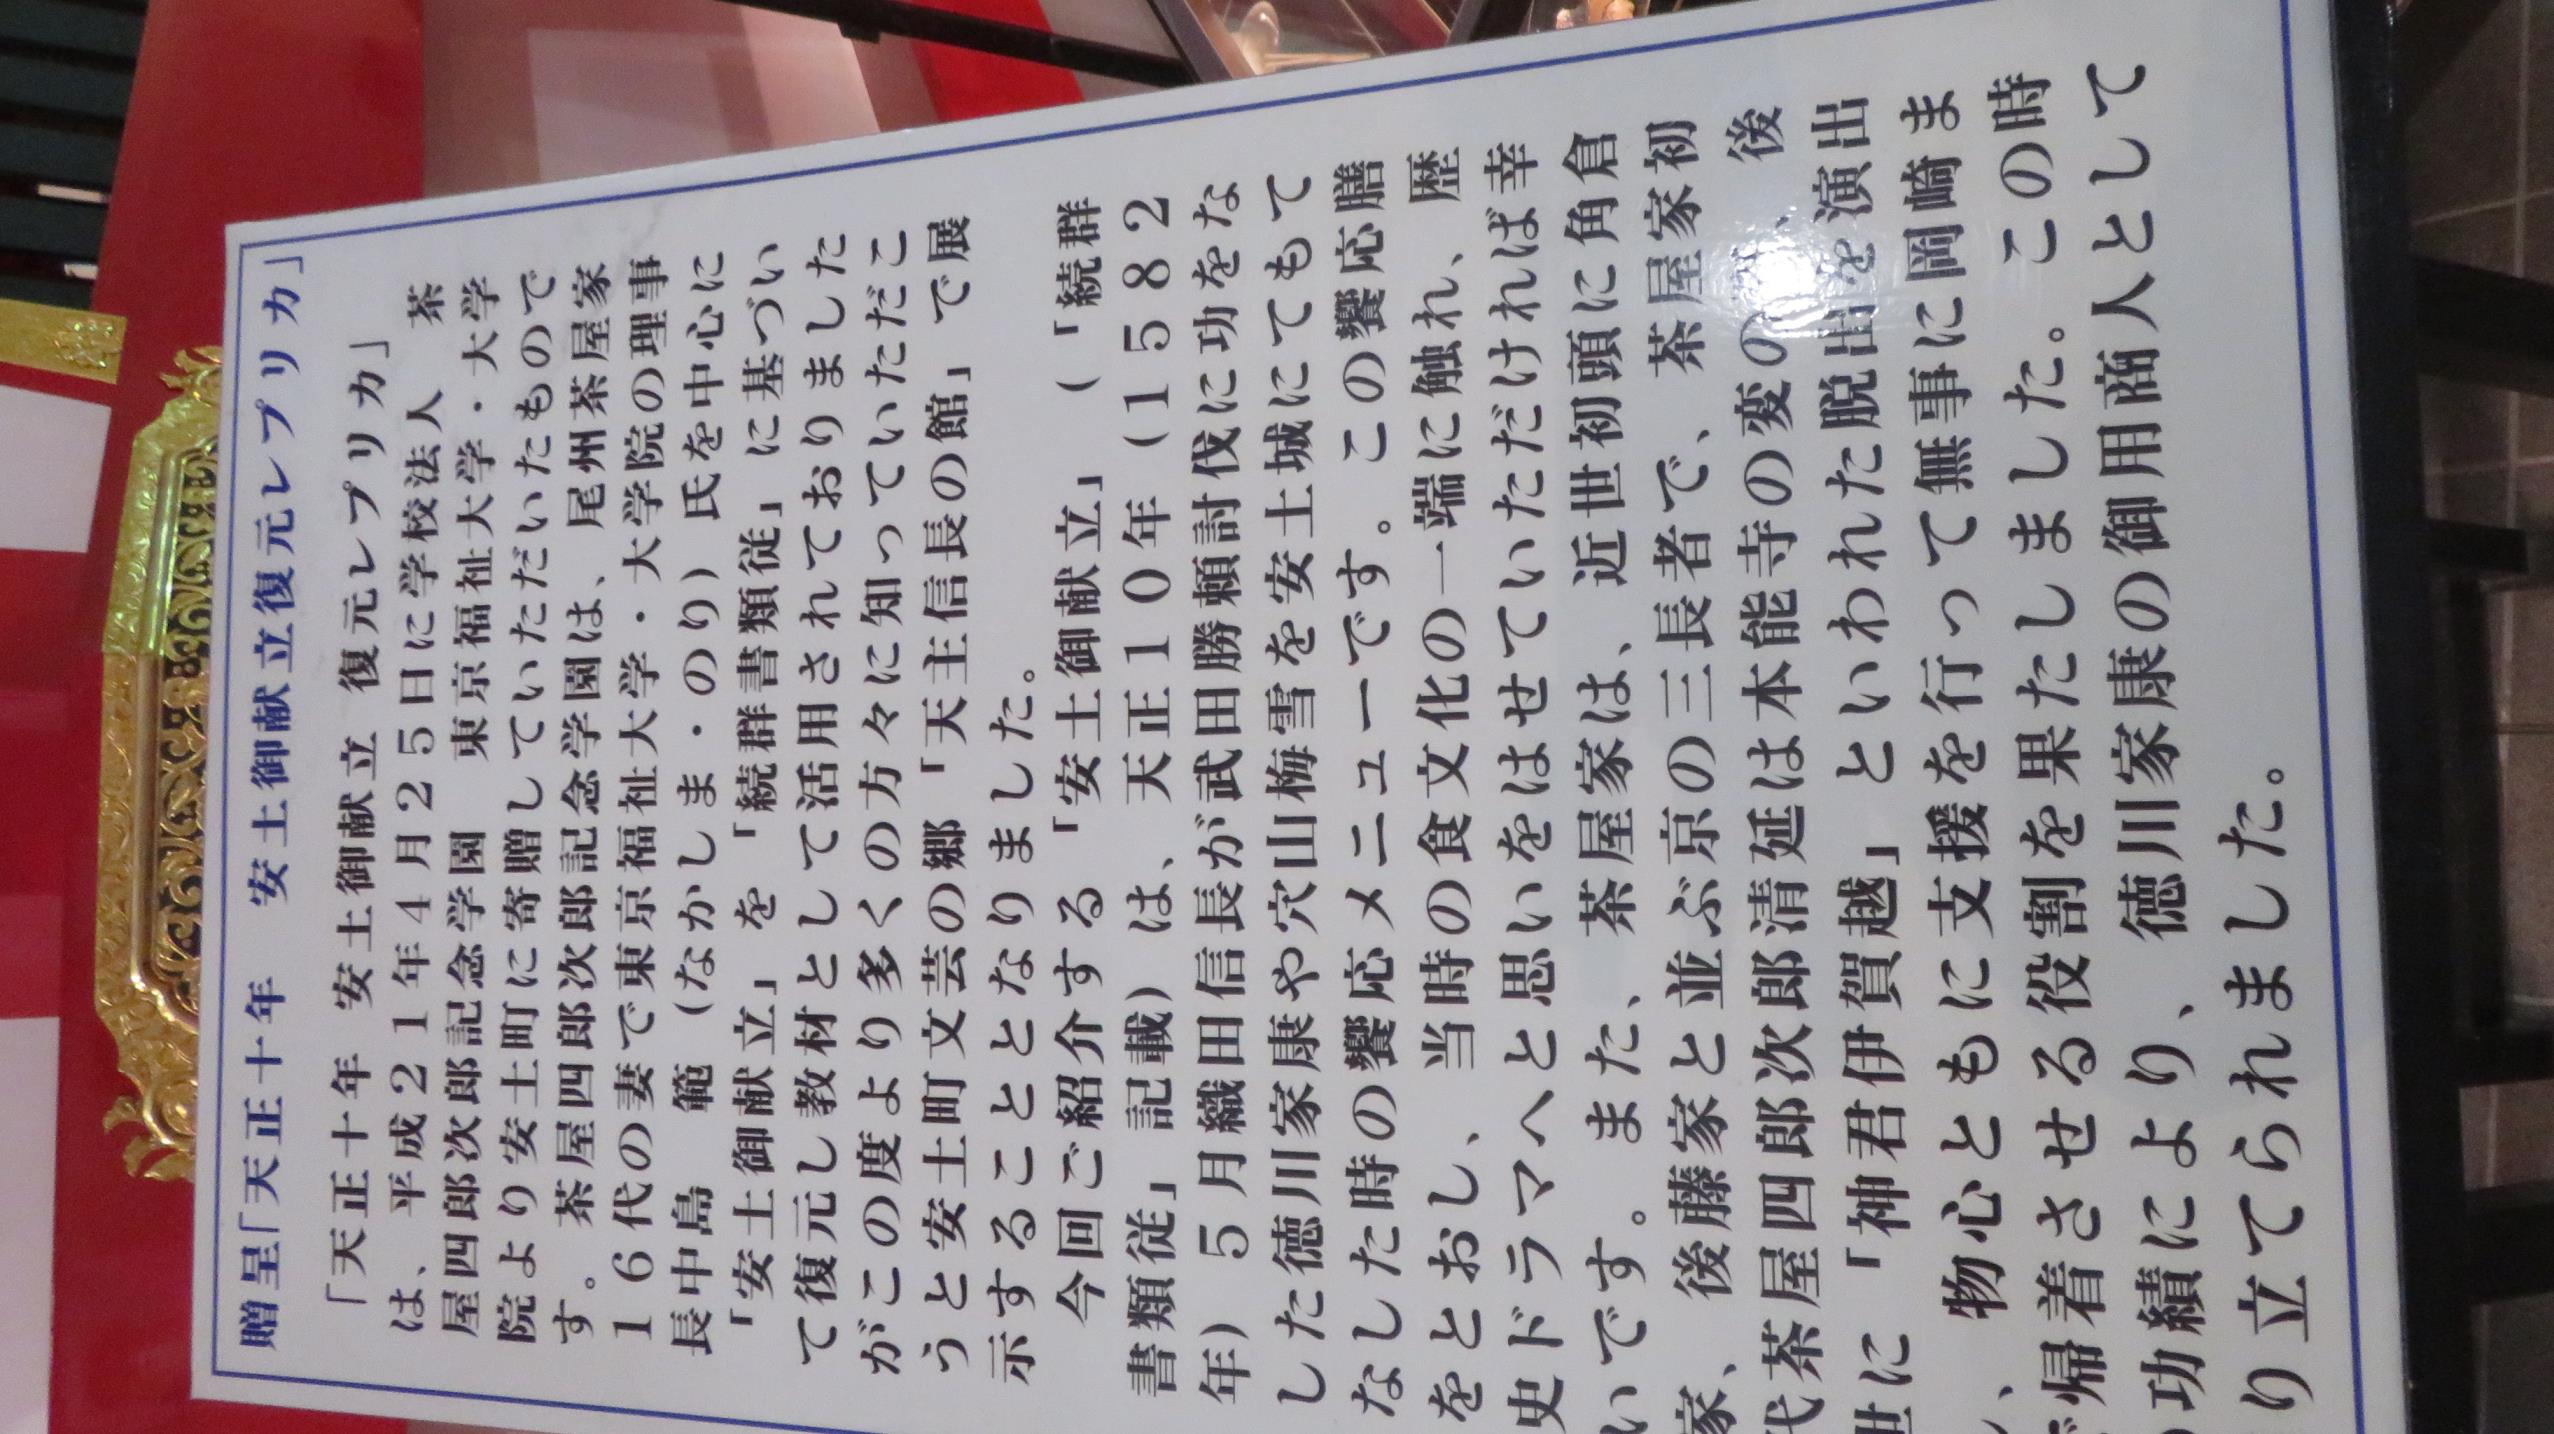 贈呈「天正十年　安土御献立復元レプリカ」
「天正十年　安土御献立　復元レプリカ」
は、平成２１年４月２５日に学校法人　茶
屋四郎次郎記念学園　東京福祉大学・大学
院より安土町に寄贈していただいたもので
す。茶屋四郎次郎記念学園は、尾州茶屋家
１６代の妻で東京福祉大学・大学院の理事
長中島　範（なかしま・のり）氏を中心に
「安土御献立」を「続群書類従」に基づい
て復元し教材として活用されておりました
がこの度より多くの方々に知っていただこ
うと安土町文芸の郷「天主信長の館」で展
示することとなりました。
今回ご紹介する「安土御献立」（「続群
書類従」記載）は、天正１０年（１５８２
年）５月織田信長が武田勝頼討伐に功をな
した徳川家康や穴山梅雪を安土城にてもて
なした時の饗応メニューです。この饗応膳
をとおし、当時の食文化の一端に触れ、歴
史ドラマへと思いをはせていただければ幸
いです。また、茶屋家は、近世初頭に角倉
家、後藤家と並ぶ京の三長者で、茶屋家初
代茶屋四郎次郎清延は本能寺の変の、後
世に「神君伊賀越」といわれた脱出を演出
、物心ともに支援を行って無事に岡崎ま
で帰着させる役割を果たしました。この時
の功績により、徳川家康の御用商人として
り立てられました。